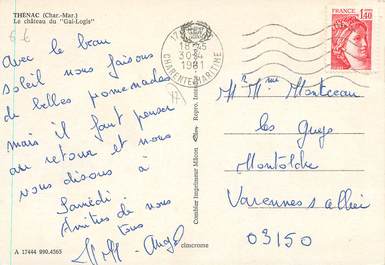 THÉNAC (Char.-Mar.)
Le château du "Gai-Logis"
Avec le beau
soleil nous faisons
de belles promenades
mais il faut penser
au retour et nous
vous disons à
Samedi
Amitiés de nous
tous
A 17444 990.4565
Combier Imprimeur Mâcon
Repro.
cimcrome
30-4
1981
CHARENTE-MARITIME
FRANCE
1,40
Mr Mme Montceau
les Guys
Montoldre
Varennes s/allier
03150